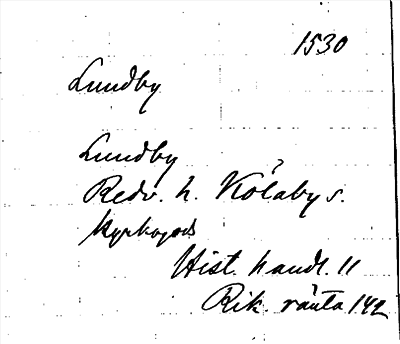 1530
Lundby
Lundby
Redv. h. Kölaby s.
Kyrkogods
Hist. handl. 11
Rik. ränta 142